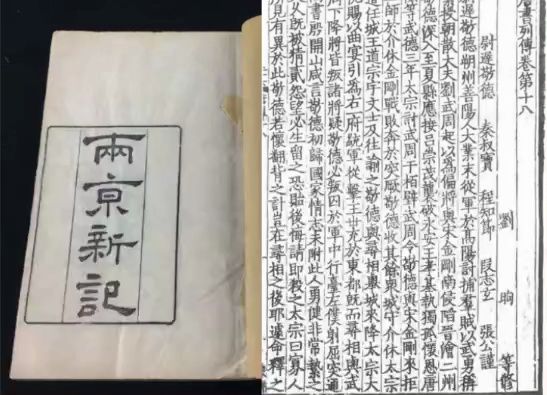 兩京新記
書列傳卷第十八
劉昫 等脩
尉遲敬德 秦叔寶 程知節 段志玄 張公謹
尉遲敬德朔州善陽人大業末從軍於高陽討捕羣賊以武勇稱
授朝散大夫劉武周起以爲偏將與宋金剛南侵陷晉澮二州
敬德深入至夏縣應接呂崇茂襲破永安王孝基執獨孤懷恩唐
等武德三年太宗討武周於柏壁武周令敬德與宋金剛來拒
師於介休金剛戰敗奔於突厥敬德收其餘衆城守介休太宗
遣任城王道宗宇文士及往諭之敬德與尋相舉城來降太宗大
悅賜以曲宴引爲右府統軍從擊王世充於東都既而尋相與武
周下降將皆叛諸將疑敬德必叛囚於軍中行臺左僕射屈突通
書殷開山咸言敬德初歸國家情志未附此人勇健非常縶之
又既被猜貳怨望必生留之恐貽後悔請即殺之太宗曰寡人
所見有異於此敬德若懷翻背之計豈在尋相之後耶遽命釋之